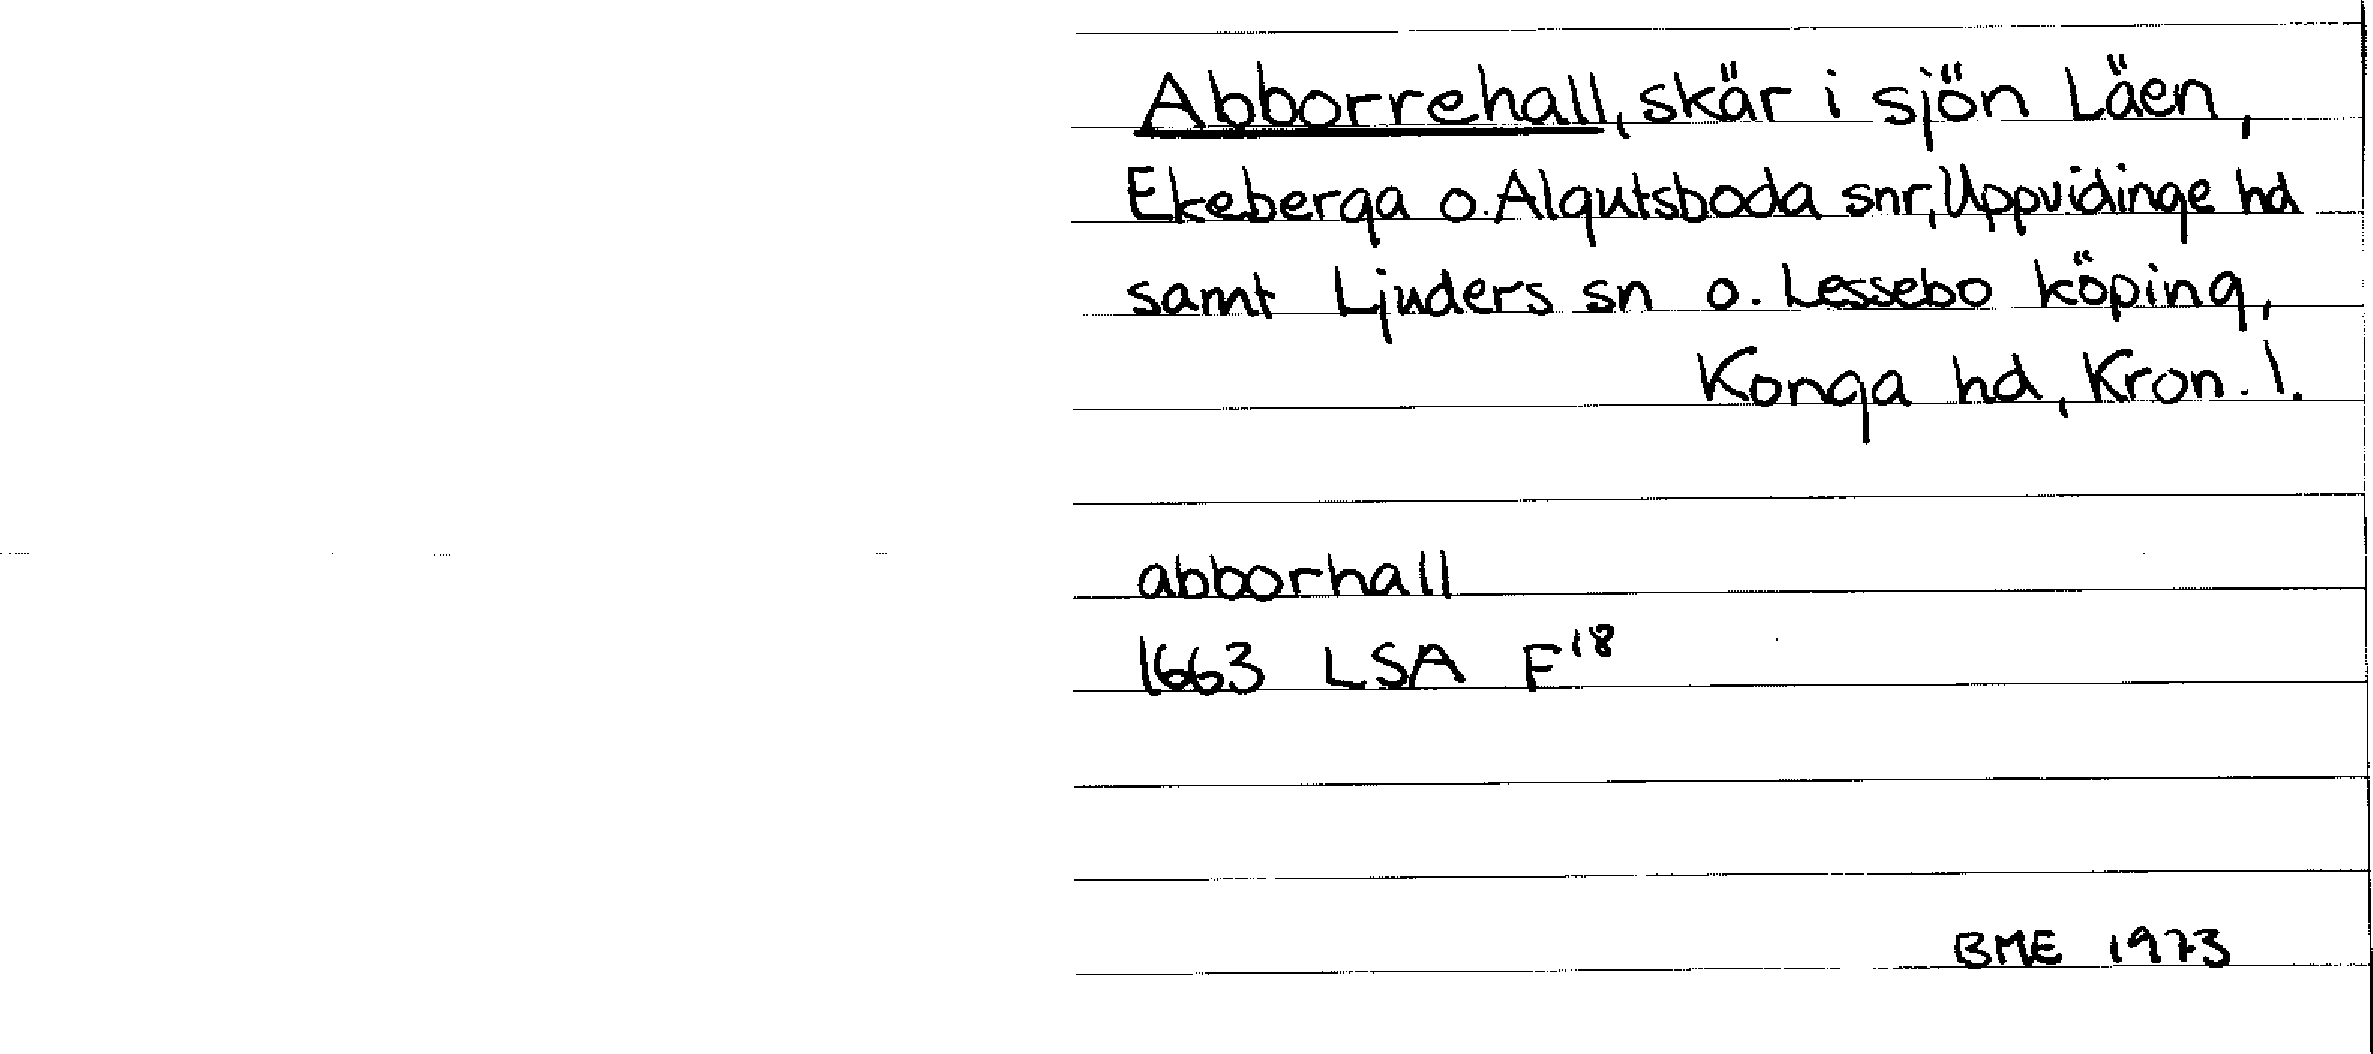 Abborrehall, skär i sjön Läen,
Ekeberga o. Algutsboda snr, Uppvidinge hd
samt Ljuders sn o. Lessebo köping,
Konga hd, Kron. l.
abborhall
1663 LSA F¹⁸
BME 1973